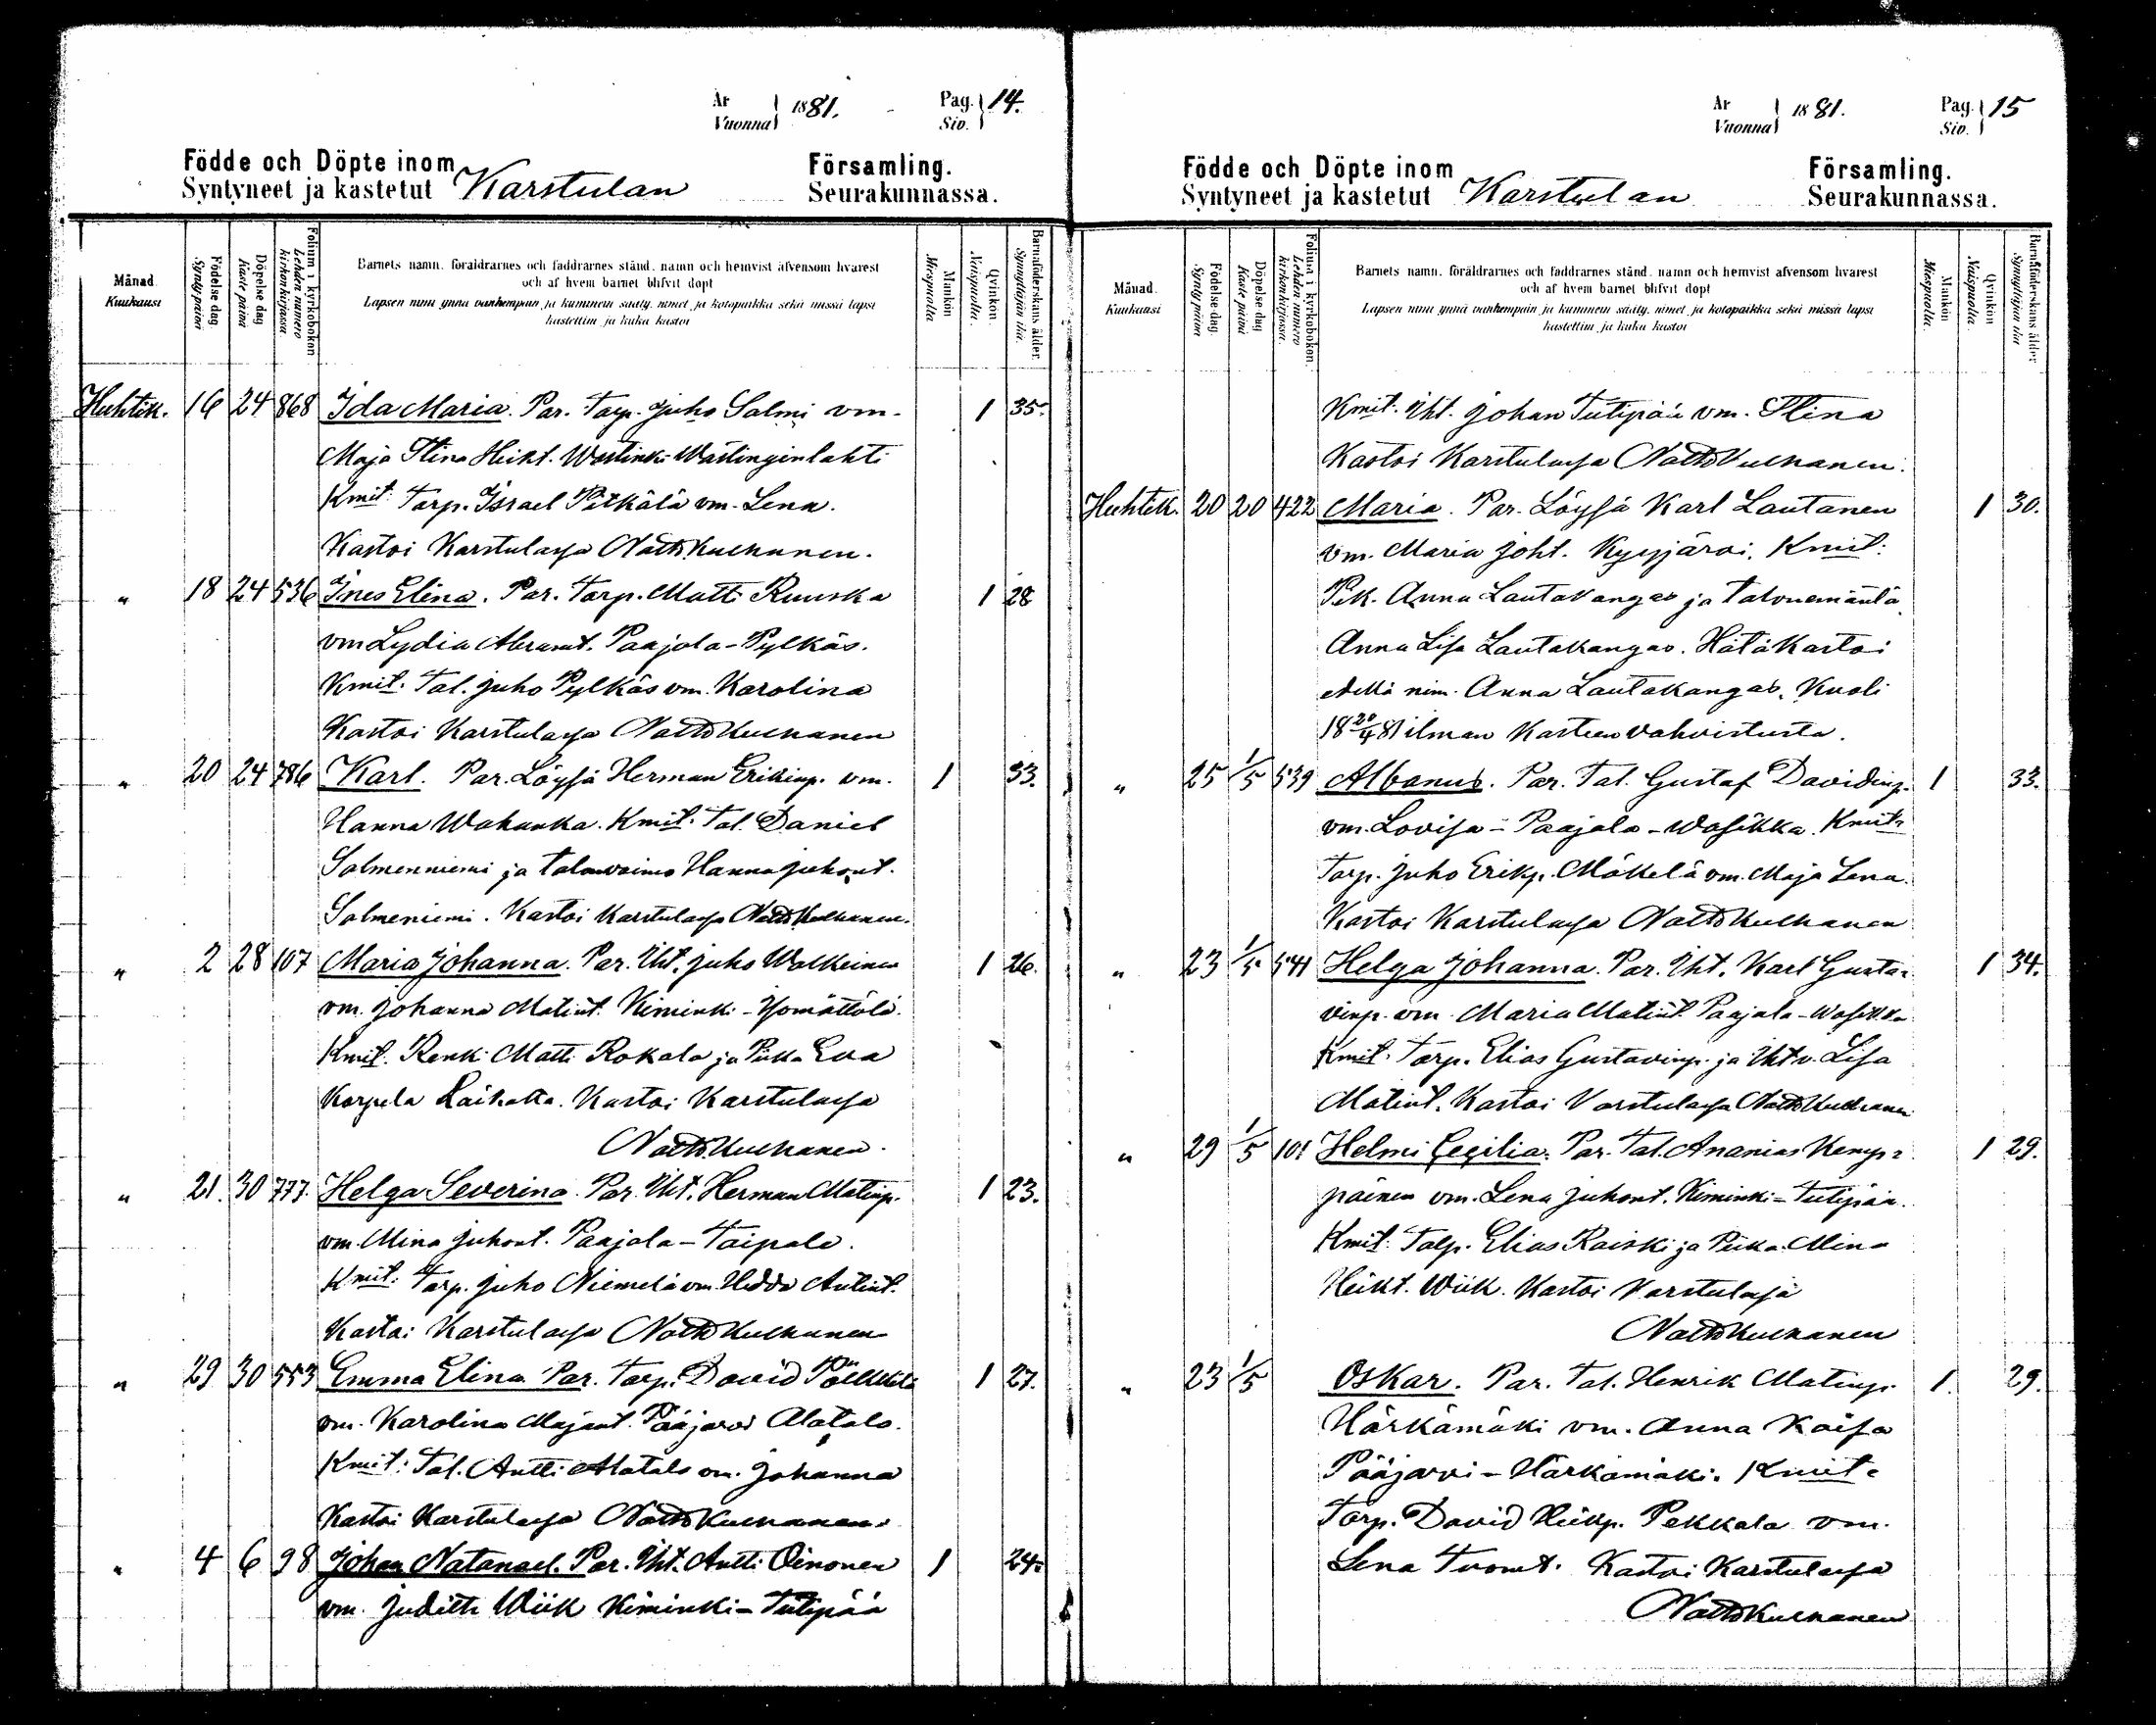 År
Vuonna 1881. Pag. Siv. 14.
Födde och Döpte inom Församling.
Syntyneet ja kastetut Karstulan Seurakunnassa.
Månad Kuukausi
Födelse dag Synty päivä
Döpelse dag Kaste päivä
Folium i kyrkoboken Lehden numero kirkonkirjassa.
Barnets namn, föräldrarnes och faddrarnes stånd, namn och hemvist äfvensom hvarest
och af hvem barnet blifvit döpt
Lapsen nimi ynnä vanhempain ja kummein sääty, nimet ja kotopaikka sekä missä lapsi
kastettiin ja kuka kastoi
Mankön Miespuolia
Qvinkön. Naispuolia.
Barnaföderskans ålder. Synnyttäjän ikä.
Huhtik. 16 24 868 Ida Maria. Par. Torp. Juho Salmi vm. 1 35.
Maja Stina Heikt. Wastinki Wastinginlahti
Kmit: Torp. Israel Pitkälä vm. Lena.
Kastoi Karstulassa Natth Kuckanen.
" 18 24 536 Ines Elina. Par. Torp. Matti Ruuska 1 28
vm Lydia Abramt. Paajala-Pylkäs.
Kmit. Tal. Juho Pylkäs vm. Karolina
Kastoi Karstulassa Natth Kuckanen
" 20 24 786 Karl. Par. Löysä Herman Erikinp. vm. 1 33.
Hanna Wahanka. Kmit. Tal. Daniel
Salmenniemi ja talonvaimo Hanna Juhont.
Salmeniemi. Kastoi Karstulassa Natth Kuckanen.
" 2 28 107 Maria Johanna. Par. Iht. Juho Walkeinen 1 26.
vm. Johanna Matint. Kiminki-
Kmit. Renki Matti Rokala ja Piika Eva
Korpela Kastoi Karstulassa
Natth Kuckanen.
" 21. 30 777. Helga Severina. Par. Iht. Herman Matinp. 1 23.
vm. Mina Juhont. Paajala-Taipale.
Kmit: Torp. Juho Niemelä vm. Hedda Antint.
Kastoi Karstulassa Natth Kuckanen
" 29 30 553 Emma Elina. Par. Torp. David Pölkkilä 1 27.
vm. Karolina Majant. Pääjärvi Alatalo.
Kmit: Tal. Antti Alatalo vm. Johanna
Kastoi Karstulassa Natth Kuckanen.
" 4 6 98 Johan Natanael. Par. Iht. Antti Oinonen 1 24.
vm. Judith Wiik Kiminki-Tutipää
År
Vuonna 1881. Pag. Siv. 15
Födde och Döpte inom Församling.
Syntyneet ja kastetut Karstulan Seurakunnassa.
Månad. Kuukausi
Födelse dag. Synty päivä
Döpelse dag Kaste päivä
Folium i kyrkoboken Lehden numero kirkonkirjassa.
Barnets namn, föräldrarnes och faddrarnes stånd, namn och hemvist äfvensom hvarest
och af hvem barnet blifvit döpt
Lapsen nimi ynnä vanhempain ja kummein sääty, nimet ja kotopaikka sekä missä lapsi
kastettiin ja kuka kastoi
Mankön Miespuolia.
Qvinkön Naispuolia.
Barnaföderskans ålder Synnyttäjän ikä
Kmit. Iht. Johan Tutipää vm. Stina
Kastoi Karstulassa Natth Kuckanen.
Huhtik. 20 20 422 Maria. Par. Löysä Karl Lautanen 1 30.
vm. Maria Joht. Kyyjärvi. Kmit:
Piik. Anna Lautakangas ja talonemäntä
Anna Lisa Lautakangas. Hätäkastoi
edellä nim. Anna Lautakangas. Kuoli
18 20/4 81 ilman kasteen vahvistusta.
" 25 1/5 539 Albanus. Par. Tal. Gustaf Davidinp. 1 33.
vm. Lovisa - Paajala-Wasikka. Kmit:
Torp. Juho Erikp. Mäkelä vm. Maja Lena.
Kastoi Karstulassa Natth Kuckanen
" 23 1/5 541 Helga Johanna. Par. Iht. Karl Gusta= 1 34.
vinp. vm. Maria Matint. Paajala-Wasikka
Kmit. Torp. Elias Gustavinp. ja Iht. v. Lisa
Matint. Kastoi Karstulassa Natth Kuckanen
" 29 1/5 101 Helmi Cecilia. Par. Tal. Ananias Kemp= 1 29.
päinen vm. Lena Juhont. Kiminki-Tutipää.
Kmit: Talp. Elias Raiski ja Piika Mina
Heikt. Wiik. Kastoi Karstulassa
Natth Kuckanen
" 23 1/5 Oskar. Par. Tal. Henrik Matinp. 1. 29.
Härkämäki vm. Anna Kaisa
Pääjärvi-Härkämäki. Kmit:
Torp. David Heikp. Pekkala vm.
Lena Tuomt. Kastoi Karstulassa
Natth Kuckanen